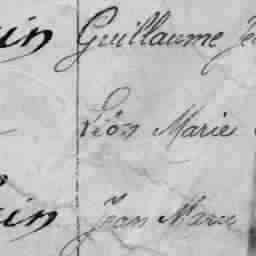 in Guillaume Je
Léon Marie
in Jean Marie